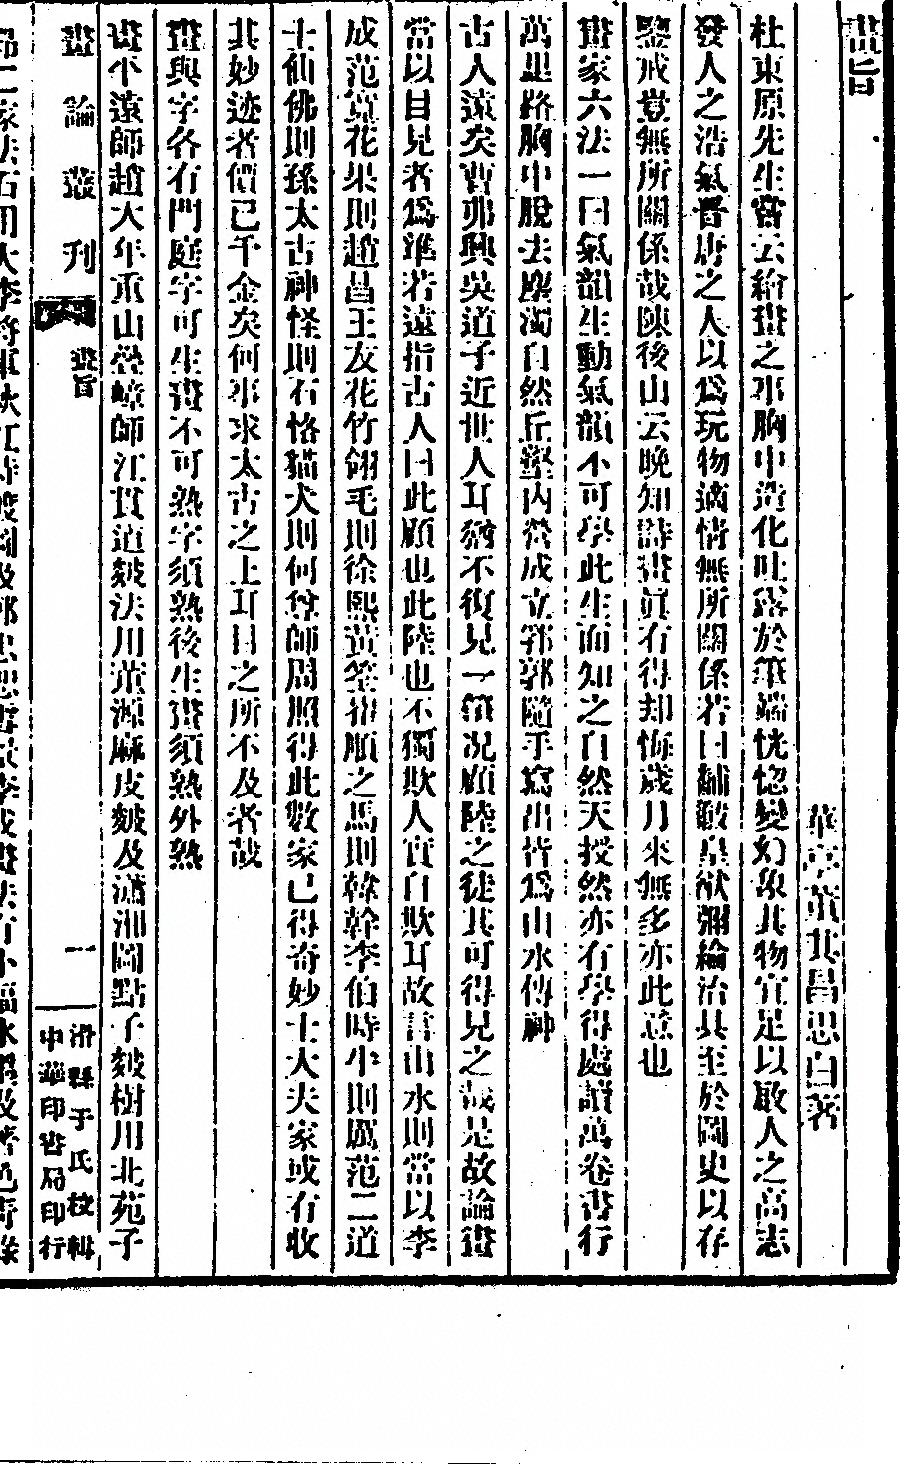 畫旨
華亭董其昌思白著
杜東原先生嘗云繪畫之事胸中造化吐露於筆端怳惚變幻象其物宜足以啟人之高志
發人之浩氣晉唐之人以爲玩物適情無所關係若曰黼黻皇猷彌綸治具至於圖史以存
鑒戒豈無所關係哉陳後山云晚知詩畫眞有得却悔歲月來無多亦此意也
畫家六法一曰氣韻生動氣韻不可學此生而知之自然天授然亦有學得處讀萬卷書行
萬里路胸中脫去塵濁自然丘壑內營成立郛郭隨手寫出皆爲山水傳神
古人遠矣曹弗興吳道子近世人耳猶不復見一筆况顧陸之徒其可得見之哉是故論畫
當以目見者爲準若遠指古人曰此顧也此陸也不獨欺人實自欺耳故言山水則當以李
成范寬花果則趙昌王友花竹翎毛則徐熙黃筌崔順之馬則韓幹李伯時牛則厲范二道
士仙佛則孫太古神怪則石恪猫犬則何尊師周照得此數家已得奇妙士大夫家或有收
其妙迹者價已千金矣何事求太古之上耳目之所不及者哉
畫與字各有門庭字可生畫不可熟字須熟後生畫須熟外熟
畫平遠師趙大年重山疊嶂師江貫道皴法用董源麻皮皴及瀟湘圖點子皴樹用北苑子
畫論叢刊
畫旨
一
滑縣于氏校輯
中華印書局印行
昂二家法石用大李將軍秋江待渡圖及郭忠恕雪景李成畫法有小幅水墨及著色靑綠